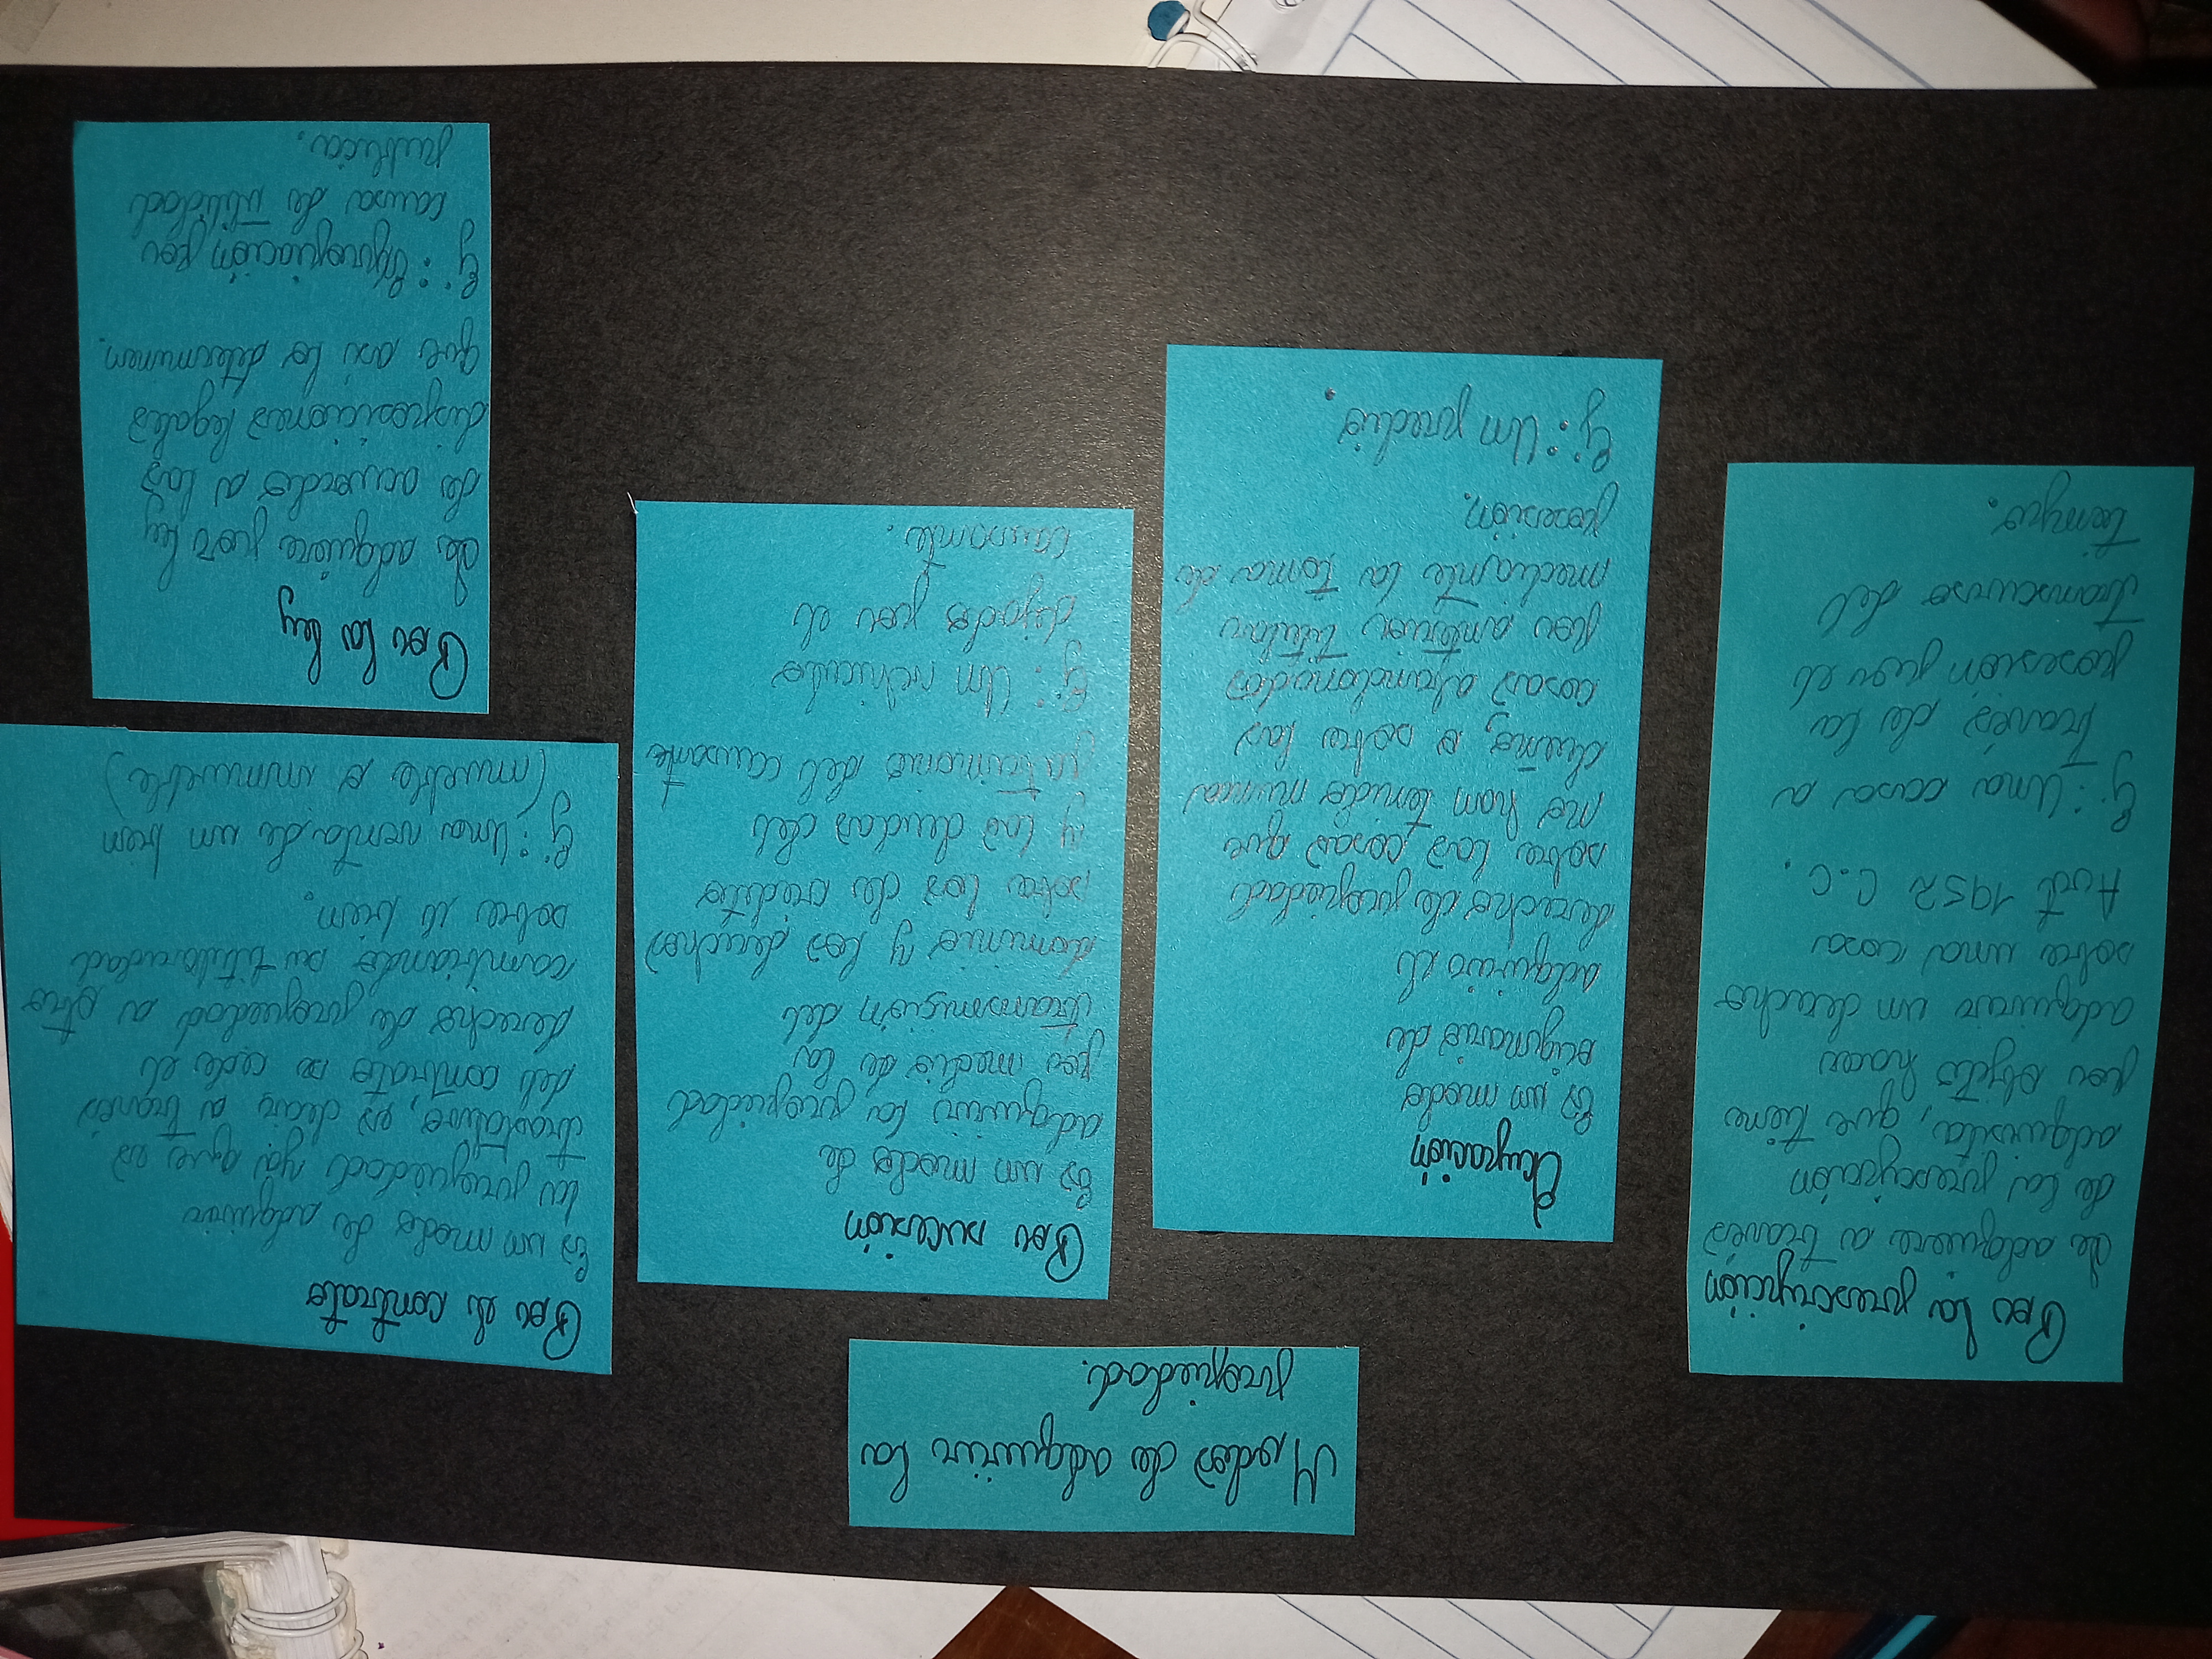 Modos de adquirir la
propiedad.
Por la prescripción
Se adquiere a través
de la prescripción
adquisita, que tiene
por objeto hacer
adquirir un derecho
sobre una cosa
Art 1952 C.C.
Ej: Una casa a
través de la
posesión por el
transcurso del
tiempo.
Ocupación
Es un modo
originario de
adquirir el
derecho de propiedad
sobre las cosas que
no han tenido nunca
dueño, o sobre las
cosas abandonadas
por anterior titular
mediante la toma de
posesión.
Ej: Un predio.
Por sucesión
Es un modo de
adquirir la propiedad
por medio de la
transmisión del
dominio y los derechos
sobre los de credito
y las deudas del
patrimonio del causante
Ej: Un vehiculo
dejado por el
causante.
Por el contrato
Es un modo de adquirir
la propiedad ya que es
traslativo, es decir a través
del contrato se cede el
derecho de propiedad a otro
cambiando su titularidad
sobre el bien.
Ej: Una venta de un bien
(mueble o inmueble)
Por la ley
Se adquiere por ley
de acuerdo a las
disposiciones legales
que asi lo determinen.
Ej: Expropiación por
causa de utilidad
publica.